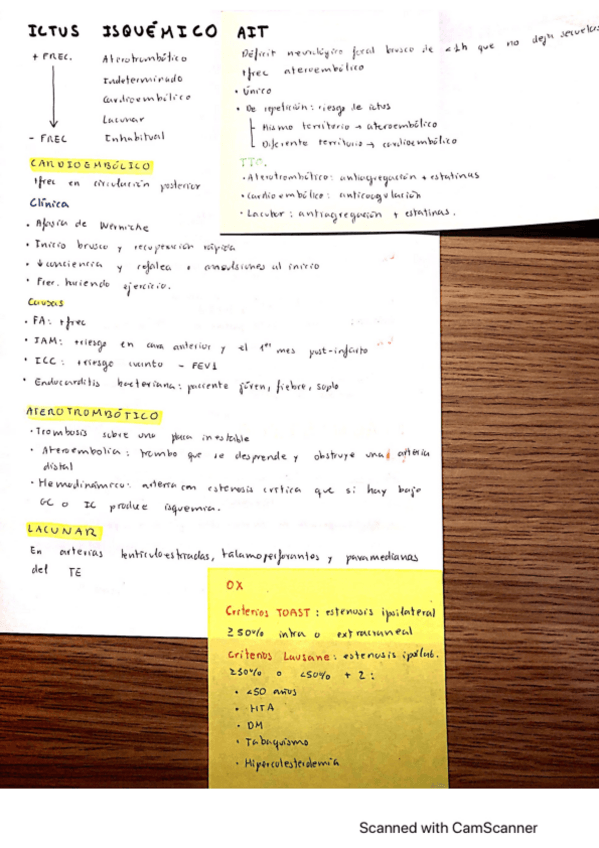 ICTUS ISQUÉMICO
+ FREC. Aterotrombótico
Indeterminado
Cardioembólico
Lacunar
- FREC Inhabitual
CARDIOEMBÓLICO
↑frec en circulación posterior
Clínica
• Afasia de Wernicke
• Inicio brusco y recuperación rápida
• ↓consciencia y cefalea o convulsiones al inicio
• Frec. haciendo ejercicio.
Causas
• FA: +frec
• IAM: +riesgo en cara anterior y el 1er mes post-infarto
• ICC: +riesgo cuanto - FEVI
• Endocarditis bacteriana: paciente jóven, fiebre, soplo
ATEROTROMBÓTICO
• Trombosis sobre una placa inestable
• Ateroembolia: trombo que se desprende y obstruye una arteria
distal
• Hemodinámico: arteria con estenosis crítica que si hay bajo
GC o IC produce isquemia.
LACUNAR
En arterias lenticuloestriadas, talamoperforantes y paramedianas
del TE
AIT
Déficit neurológico focal brusco de <1h que no deja secuelas
↑frec ateroembólico
• Único
• De repetición: riesgo de ictus
Mismo territorio → ateroembólico
Diferente territorio → cardioembólico
TTO.
• Aterotrombótico: antiagregación + estatinas
• Cardioembólico: anticoagulación
• Lacunar: antiagregación + estatinas.
DX
Criterios TOAST: estenosis ipsilateral
≥50% intra o extracraneal
Criterios Lausane: estenosis ipsilat.
≥50% o <50% + 2:
• <50 años
• HTA
• DM
• Tabaquismo
• Hipercolesterolemia
Scanned with CamScanner